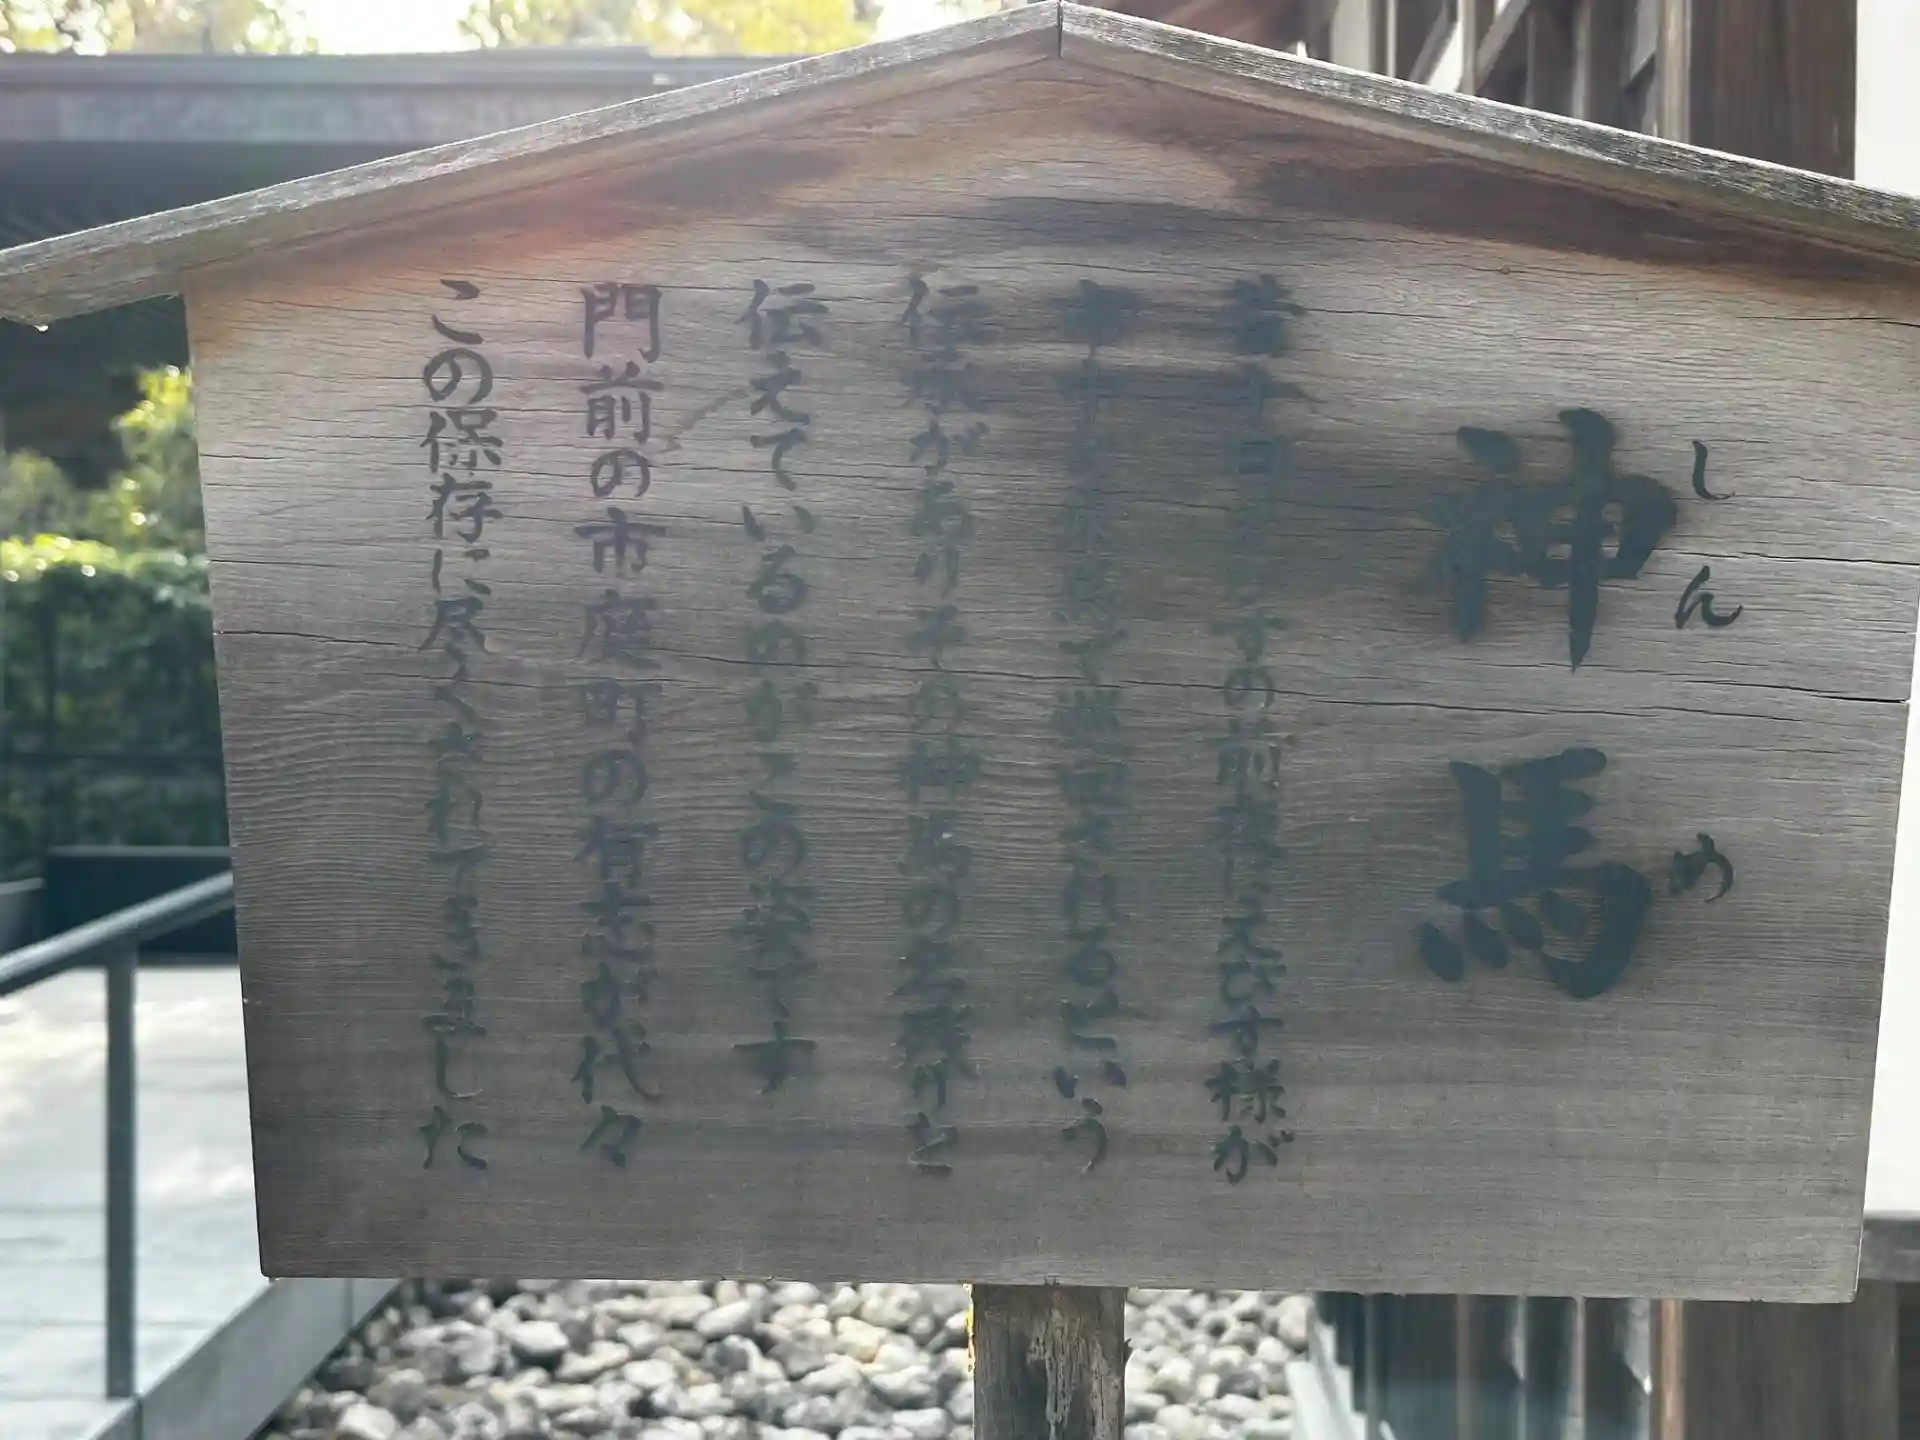 神馬
しんめ
昔十日えびすの前夜にえびす様が
市中を乗馬で巡回されるという
伝承がありその神馬の名残りを
伝えているのがこの姿です
門前の市庭町の有志が代々
この保存に尽くされてきました